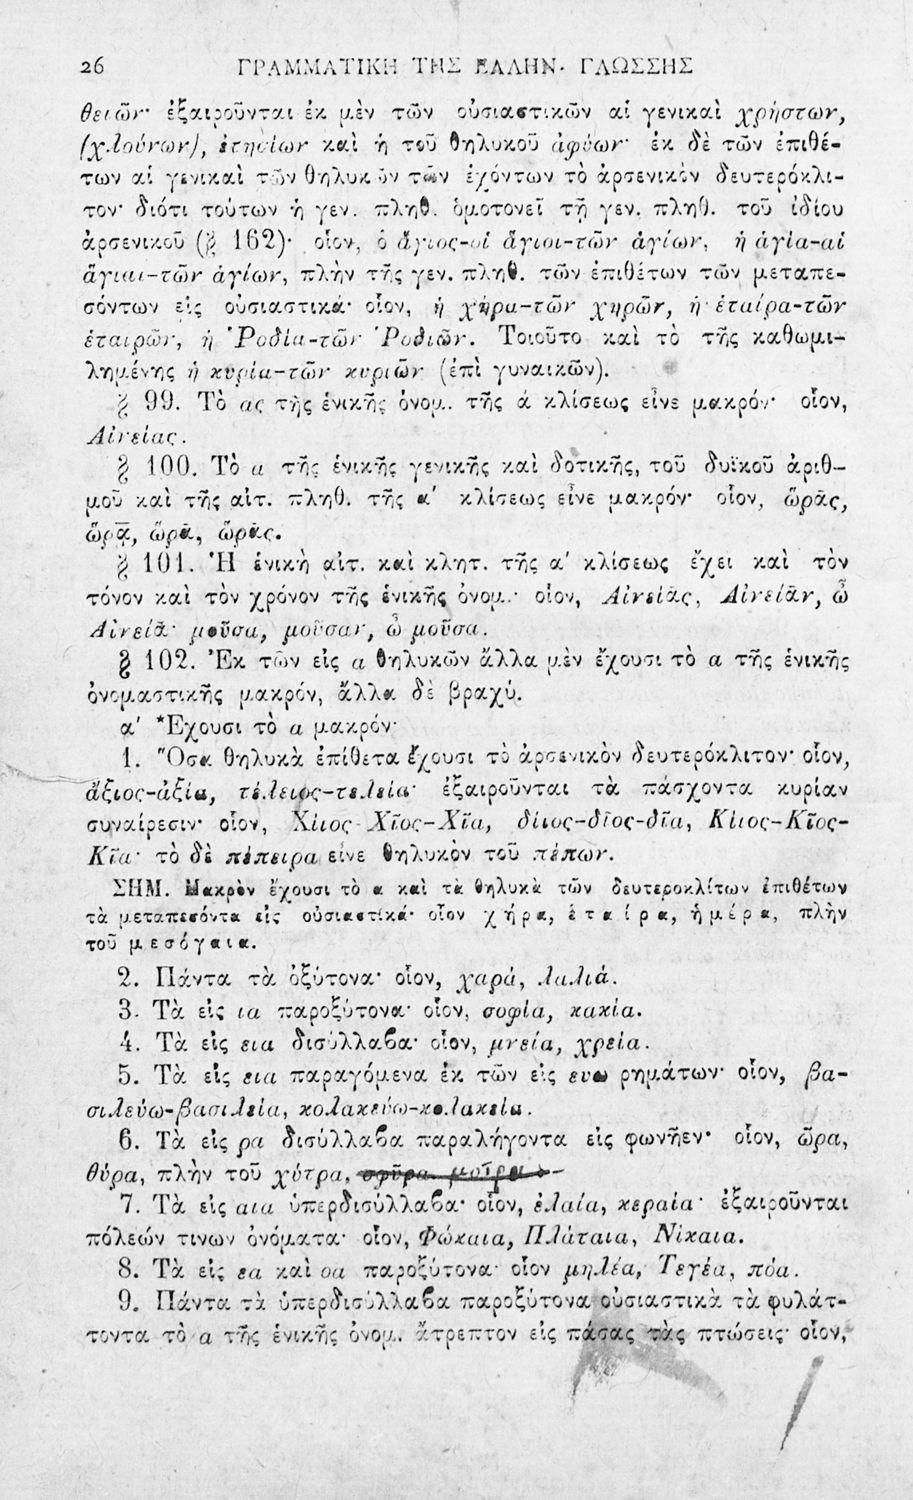 26 ΓΡΑΜΜΑΤΙΚΗ ΤΗΣ ΕΛΛΗΝ. ΓΛΩΣΣΗΣ
θειῶν· ἐξαιροῦνται ἐκ μὲν τῶν οὐσιαστικῶν αἱ γενικαὶ χρήστων,
(χλούνων), ἐτησίων καὶ ἡ τοῦ θηλυκοῦ ἀφύων· ἐκ δὲ τῶν ἐπιθέ-
των αἱ γενικαὶ τῶν θηλυκῶν τῶν ἐχόντων τὸ ἀρσενικὸν δευτερόκλι-
τον· διότι τούτων ἡ γεν. πληθ. ὁμοτονεῖ τῇ γεν. πληθ. τοῦ ἰδίου
ἀρσενικοῦ (§ 162)· οἷον, ὁ ἅγιος-οἱ ἅγιοι-τῶν ἁγίων, ἡ ἁγία-αἱ
ἅγιαι-τῶν ἁγίων, πλὴν τῆς γεν. πληθ. τῶν ἐπιθέτων τῶν μεταπε-
σόντων εἰς οὐσιαστικά· οἷον, ἡ χήρα-τῶν χηρῶν, ἡ ἑταίρα-τῶν
ἑταιρῶν, ἡ Ῥοδία-τῶν Ῥοδιῶν. Τοιοῦτο καὶ τὸ τῆς καθωμι-
λημένης ἡ κυρία-τῶν κυριῶν (ἐπὶ γυναικῶν).
§ 99. Τὸ ας τῆς ἑνικῆς ὀνομ. τῆς ά κλίσεως εἶνε μακρόν· οἷον,
Αἰνείας.
§ 100. Τὸ α τῆς ἑνικῆς γενικῆς καὶ δοτικῆς, τοῦ δυϊκοῦ ἀριθ-
μοῦ καὶ τῆς αἰτ. πληθ. τῆς α' κλίσεως εἶνε μακρόν· οἷον, ὥρᾱς,
ὥρᾳ, ὥρᾱ, ὥρᾱς.
§ 101. Ἡ ἑνικὴ αἰτ. καὶ κλητ. τῆς α' κλίσεως ἔχει καὶ τὸν
τόνον καὶ τὸν χρόνον τῆς ἑνικῆς ὀνομ.· οἷον, Αἰνείᾱς, Αἰνείᾱν, ὦ
Αἰνείᾱ· μοῦσα, μοῦσαν, ὦ μοῦσα.
§ 102. Ἐκ τῶν εἰς α θηλυκῶν ἄλλα μὲν ἔχουσι τὸ α τῆς ἑνικῆς
ὀνομαστικῆς μακρόν, ἄλλα δὲ βραχύ.
α' Ἔχουσι τὸ α μακρόν·
1. Ὅσα θηλυκὰ ἐπίθετα ἔχουσι τὸ ἀρσενικὸν δευτερόκλιτον· οἷον,
ἄξιος-ἀξία, τέλειος-τελεία· ἐξαιροῦνται τὰ πάσχοντα κυρίαν
συναίρεσιν· οἷον, Χίιος-Χῖος-Χῖα, δίιος-δῖος-δῖα, Κίιος-Κῖος-
Κῖα· τὸ δὲ πέπειρα εἶνε θηλυκὸν τοῦ πέπων.
ΣΗΜ. Μακρὸν ἔχουσι τὸ α καὶ τὰ θηλυκὰ τῶν δευτεροκλίτων ἐπιθέτων
τὰ μεταπεσόντα εἰς οὐσιαστικά· οἷον χήρα, ἑταίρα, ἡμέρα, πλὴν
τοῦ μεσόγαια.
2. Πάντα τὰ ὀξύτονα· οἷον, χαρά, λαλιά.
3. Τὰ εἰς ια παροξύτονα· οἷον, σοφία, κακία.
4. Τὰ εἰς εια δισύλλαβα· οἷον, μνεία, χρεία.
5. Τὰ εἰς εια παραγόμενα ἐκ τῶν εἰς ευω ρημάτων· οἷον, βα-
σιλεύω-βασιλεία, κολακεύω-κολακεία.
6. Τὰ εἰς ρα δισύλλαβα παραλήγοντα εἰς φωνῆεν· οἷον, ὥρα,
θύρα, πλὴν τοῦ χύτρα, σφῦρα, μοῖρα.
7. Τὰ εἰς αια ὑπερδισύλλαβα· οἷον, ἐλαία, κεραία· ἐξαιροῦνται
πόλεών τινων ὀνόματα· οἷον, Φώκαια, Πλάταια, Νίκαια.
8. Τὰ εἰς εα καὶ οα παροξύτονα· οἷον μηλέα, Τεγέα, πόα.
9. Πάντα τὰ ὑπερδισύλλαβα παροξύτονα οὐσιαστικὰ τὰ φυλάτ-
τοντα τὸ α τῆς ἑνικῆς ὀνομ. ἄτρεπτον εἰς πάσας τὰς πτώσεις· οἷον,